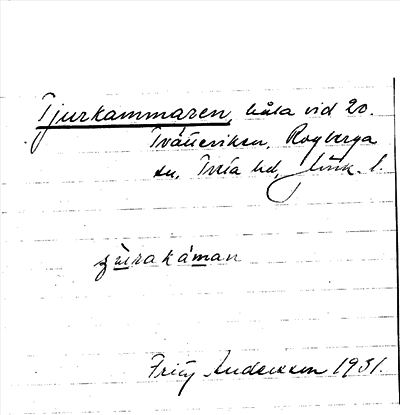 Tjurkammaren, håla vid 20.
Tvätteriken, Rogberga
sn, Tveta hd, Jönk. l.
kåman
Fritz Andersson 1931.